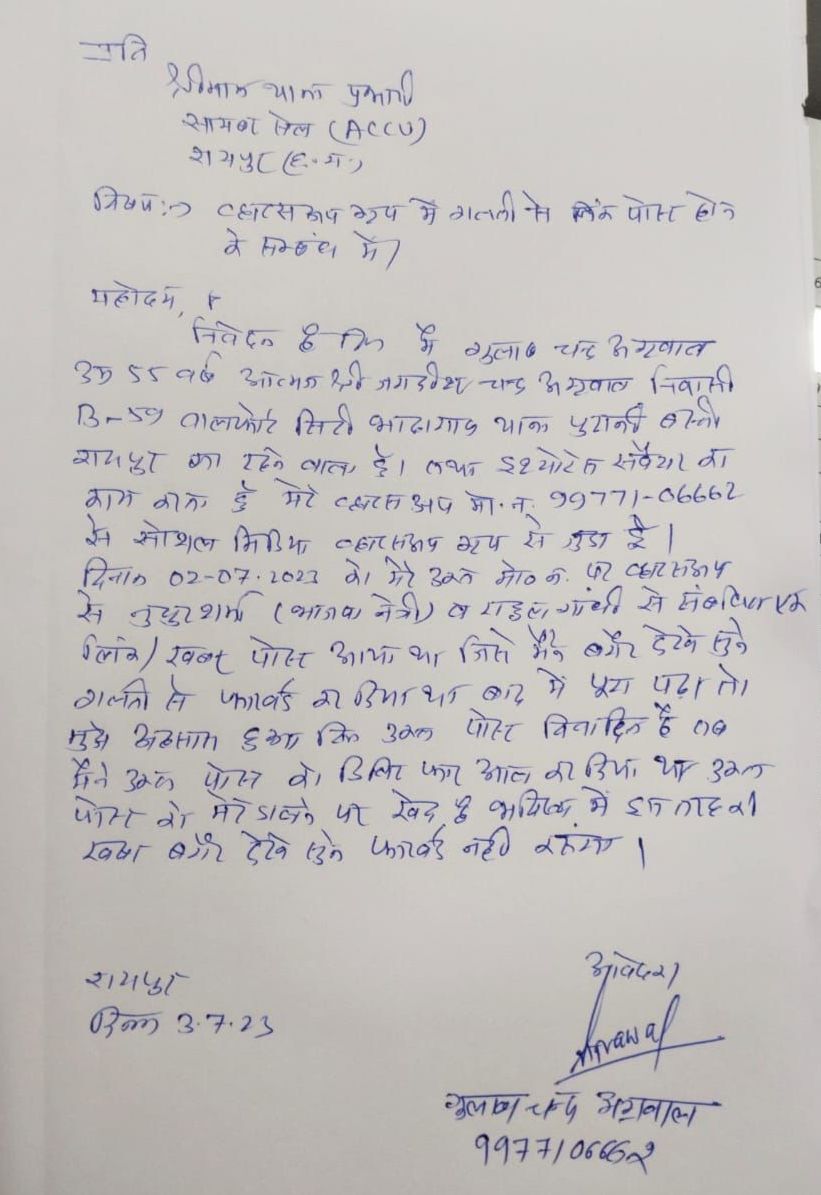 प्रति
श्रीमान थाना प्रभारी
सायबर सेल (ACCU)
रायपुर (छ.ग.)
विषय:- व्हाटसअप ग्रुप में गलती से लिंक पोस्ट होने
के सम्बंध में।
महोदय,
निवेदन है कि मैं गुलाब चन्द अग्रवाल
उम्र 55 वर्ष आत्मज श्री जगदीश चन्द्र अग्रवाल निवासी
B-59 वालफोर्ट सिटी भाठागांव थाना पुरानी बस्ती
रायपुर का रहने वाला हूं। तथा इंश्योरेंस सर्वेयर का
काम करता हूं मेरे व्हाटसअप मो.न. 99771-06662
से सोशल मिडिया व्हाटसअप ग्रुप से जुडा हूं।
दिनांक 02-07-2023 को मेरे उक्त मो०न. पर व्हाटसअप
से नुपुर शर्मा (भाजपा नेत्री) व राहुल गांधी से संबंधित एक
लिंक/खबर पोस्ट आया था जिसे मैंने बगैर देखे सुने
गलती से फारवर्ड कर दिया था बाद में पूरा पढ़ा तो
मुझे अहसास हुआ कि उक्त पोस्ट विवादित है तब
मैंने उक्त पोस्ट को डिलिट फार आल कर दिया था उक्त
पोस्ट को मेरे डालने पर खेद है भविष्य में इस तरह की
खबर बगैर देखे सुने फारवर्ड नही करूंगा।
रायपुर
दिनांक 3.7.23
आवेदक
Agrawal
गुलाब चन्द अग्रवाल
9977106662